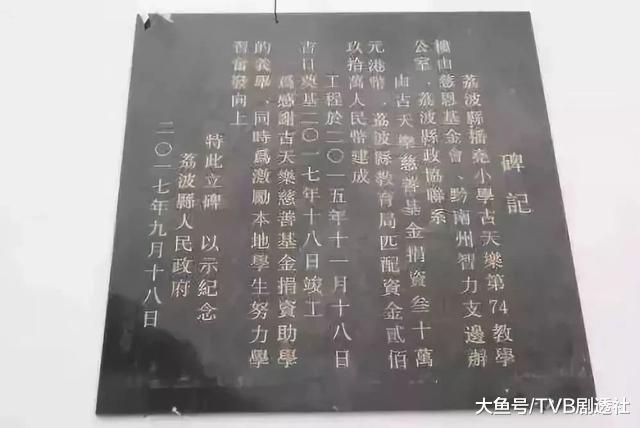 碑記
荔波縣播堯小學古天樂第74教學
樓由慈恩基金會、黔南州智力支邊辦
公室、荔波縣政協聯系
由古天樂慈善基金捐資叁十萬
元港幣、荔波縣教育局匹配資金貳佰
玖拾萬人民幣建成
工程於二〇一五年十一月十八日
吉日奠基二〇一七年十八日竣工
爲感謝古天樂慈善基金捐資助學
的義舉、同時爲激勵本地學生努力學
習奮發向上
特此立碑 以示紀念
荔波縣人民政府
二〇一七年九月十八日
大鱼号/TVB剧透社